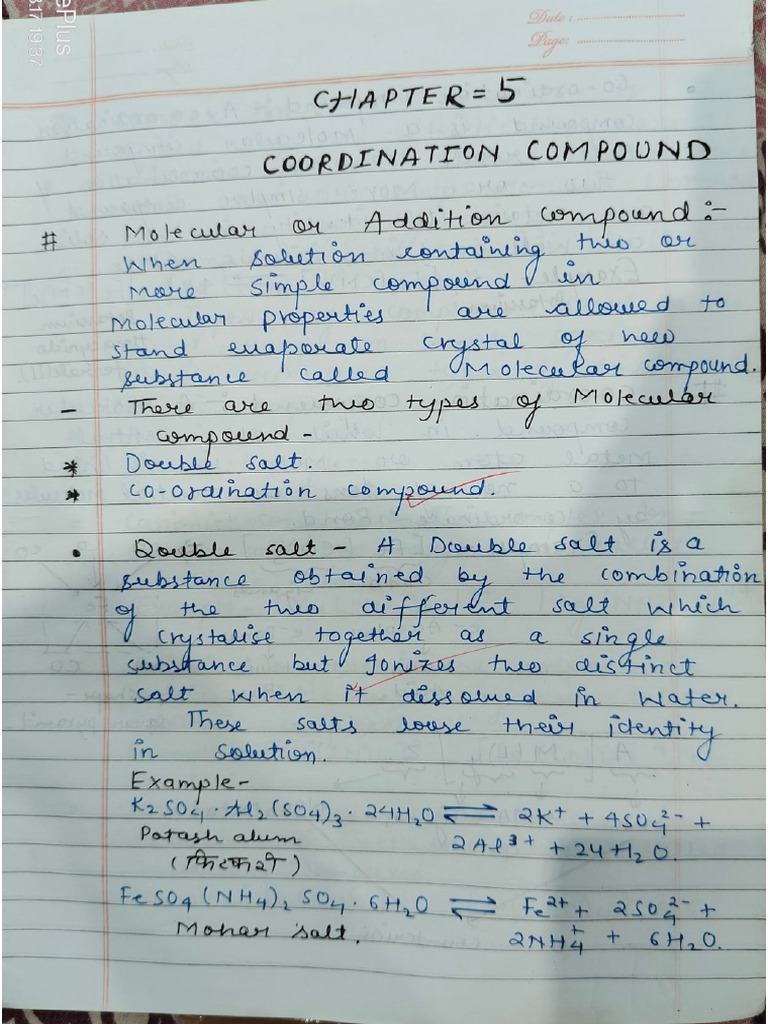 ePlus
317 19:37
Date:
Page:
CHAPTER = 5
COORDINATION COMPOUND
# Molecular or Addition compound :-
When solution containing two or
more simple compound in
Molecular properties are allowed to
stand evaporate crystal of new
substance called Molecular compound.
- There are two types of Molecular
compound -
* Double salt.
* Co-ordination compound.
• Double salt - A Double salt is a
substance obtained by the combination
of the two different salt which
crystalise together as a single
substance but Ionizes two distinct
salt when it dissolved in water.
These salts loose their identity
in solution.
Example -
K2SO4 · Al2(SO4)3 · 24H2O ⇌ 2K+ + 4SO4 2- +
2Al3+ + 24H2O.
Potash alum
(फिटकरी)
FeSO4(NH4)2SO4·6H2O ⇌ Fe2+ + 2SO4 2- +
2NH4+ + 6H2O.
Mohar salt.